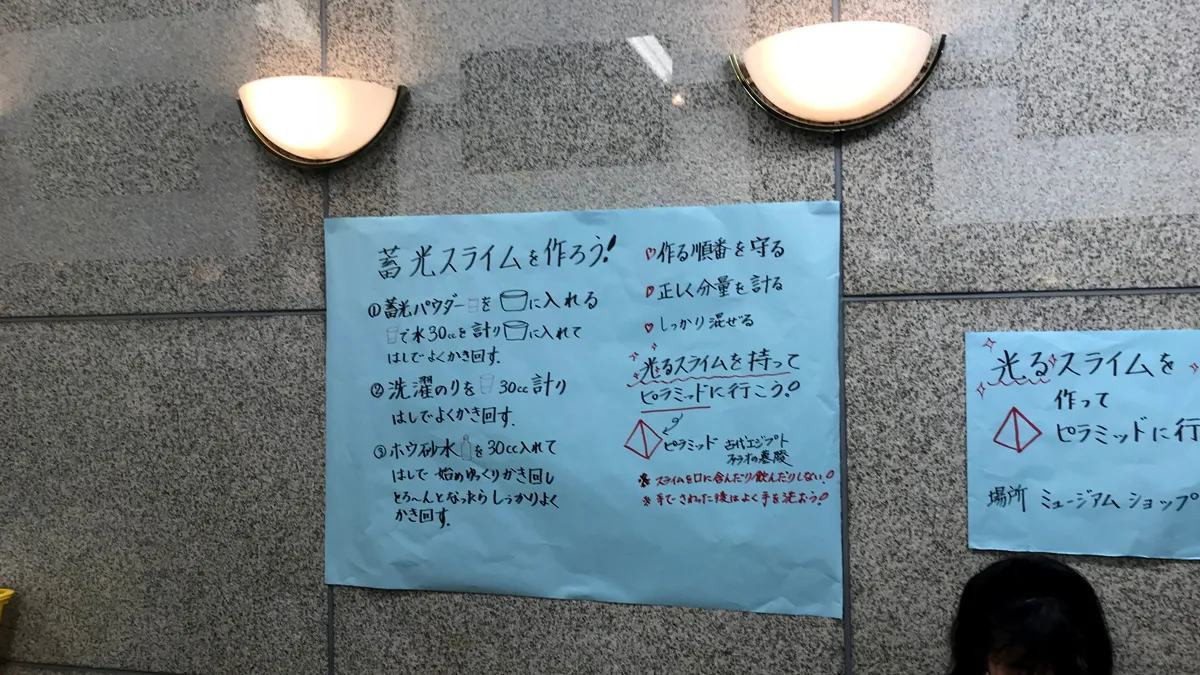 蓄光スライムを作ろう!
①蓄光パウダーを に入れる
で水30ccを計り に入れて
はしでよくかき回す.
②洗濯のりを 30cc計り
はしでよくかき回す.
③ホウ砂水 を30cc入れて
はしで 始めゆっくりかき回し
とろ〜んとなったらしっかりよく
かき回す.
♡作る順番を守る
♡正しく分量を計る
♡しっかり混ぜる
光るスライムを持って
ピラミッドに行こう!
ピラミッド 古代エジプト
ファラオの墓陵
※スライムを口に含んだり飲んだりしない!
※手でさわった後はよく手を洗おう!
光るスライムを
作って
ピラミッドに行
場所 ミュージアムショップ